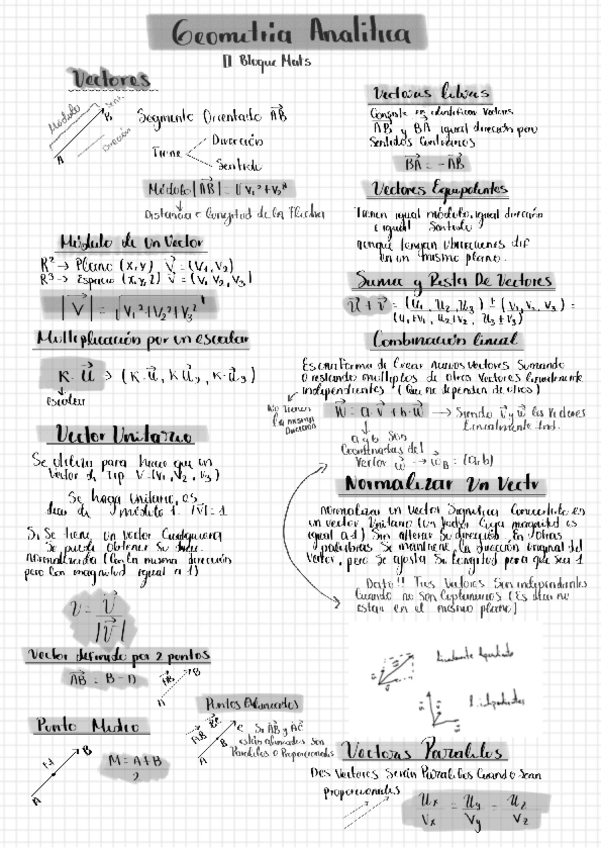 Geometria Analitica
II Bloque Mats
Vectores
Módulo
Dirección
A
B
Segmento Orientado AB
Tiene
Dirección
Sentido
Módulo |AB| = √V₁²+V₂²
Módulo de un Vector
R² → Plano (x,y) V = (V₁, V₂)
R³ → Espacio (x,y,z) V = (V₁, V₂, V₃)
|V| = √V₁²+V₂²+V₃²
Multiplicación por un escalar
K·u → (K·u₁, K·u₂, K·u₃)
Escalar
Vector Unitario
Se utiliza para hacer que un
vector de tip V=(V₁, V₂, V₃)
Se haga Unitario, es
decir de módulo 1. |V|=1
Si Se tiene un vector Cualquiera
Se puede obtener Su
normalizado (Con la misma dirección
pero con magnitud igual a 1)
U = V / |V|
Vector definido por 2 puntos
AB = B - A
A
B
Punto Medio
A
M
B
M = A+B / 2
Puntos Alineados
AB
C
Si AB y AC
están alineados son
Paralelos o Proporcionales
Vectores Libres
Consiste en identificar Vectores
AB y BA igual dirección pero
Sentidos Contrarios
BA = -AB
Vectores Equipolentes
Tienen igual módulo, igual dirección
e igual Sentido
aunque tengan ubicaciones dif
en un mismo plano.
Suma y Resta De Vectores
u + v = (u₁, u₂, u₃) ± (v₁, v₂, v₃) =
(u₁+v₁, u₂+v₂, u₃+v₃)
Combinación lineal
Es una forma de Crear nuevos vectores Sumando
o restando multiplos de otros Vectores linealmente
independientes (Que no dependen de otros)
No Tienen
la misma
Dirección
w = a·v + b·u → Siendo v y u los Vectores
Linealmente Ind.
a y b Son
Coordenadas del
Vector w → w_B = (a,b)
Normalizar Un Vectr
Normalizar un Vector Significa Convertirlo en
un vector Unitario (un Vector Cuya magnitud es
igual a 1) Sin alterar Su dirección. En otras
palabras Se mantiene la dirección original del
Vector, pero Se ajusta Su longitud para que sea 1
Dato!! Tres Vectores Son independientes
Cuando no Son Coplanarios (Es decir no
estan en el mismo plano)
Vectores Paralelos
Dos Vectores Serán Paralelos Cuando Sean
Proporcionales
Ux/Vx = Uy/Vy = Uz/Vz